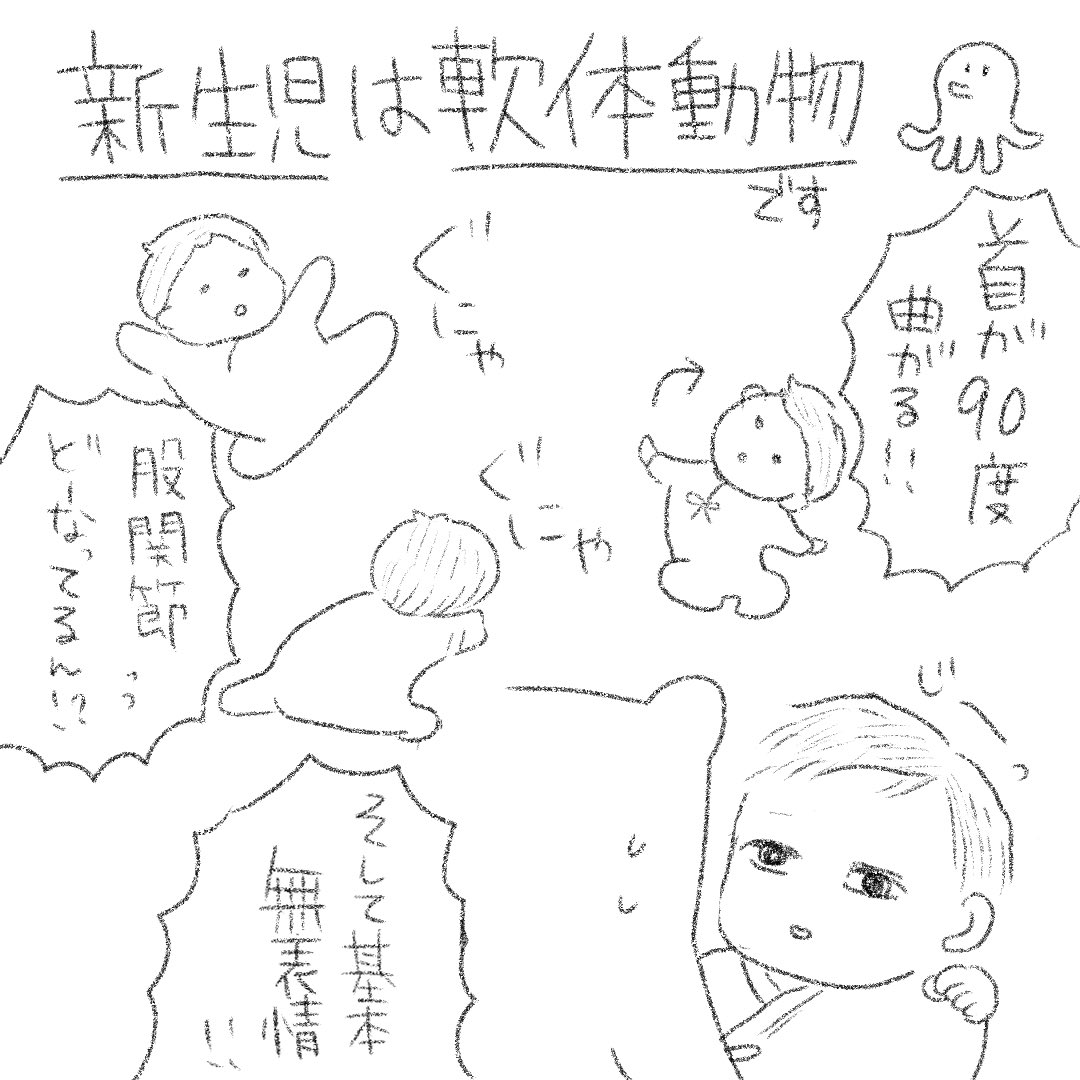 新生児は軟体動物
です
ぐにゃ
首が90度
曲がる!!
股関節
どおなってるの!?
ぐにゃ
じーっ
そして基本
無表情
!!